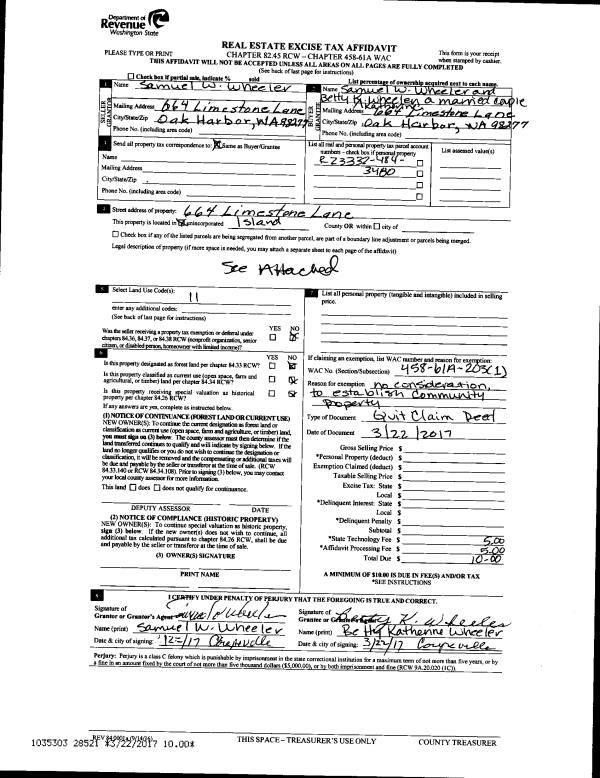 Department of
Revenue
Washington State
REAL ESTATE EXCISE TAX AFFIDAVIT
PLEASE TYPE OR PRINT
CHAPTER 82.45 RCW – CHAPTER 458-61A WAC
This form is your receipt
when stamped by cashier.
THIS AFFIDAVIT WILL NOT BE ACCEPTED UNLESS ALL AREAS ON ALL PAGES ARE FULLY COMPLETED
(See back of last page for instructions)
Check box if partial sale, indicate % sold
List percentage of ownership acquired next to each name.
1 Name Samuel W. Wheeler
2 Name Samuel W. Wheeler and
Betty K. Wheeler, a married couple
Katherine
SELLER GRANTOR
Mailing Address 664 Limestone Lane
City/State/Zip Oak Harbor, WA 98277
Phone No. (including area code)
BUYER GRANTEE
Mailing Address 664 Limestone Lane
City/State/Zip Oak Harbor, WA 98277
Phone No. (including area code)
3 Send all property tax correspondence to: Same as Buyer/Grantee
Name
Mailing Address
City/State/Zip
Phone No. (including area code)
List all real and personal property tax parcel account
numbers – check box if personal property
R23332-484-
3480
List assessed value(s)
4 Street address of property: 664 Limestone Lane
This property is located in unincorporated Island County OR within city of
Check box if any of the listed parcels are being segregated from another parcel, are part of a boundary line adjustment or parcels being merged.
Legal description of property (if more space is needed, you may attach a separate sheet to each page of the affidavit)
See Attached
5 Select Land Use Code(s):
11
enter any additional codes:
(See back of last page for instructions)
YES NO
Was the seller receiving a property tax exemption or deferral under
chapters 84.36, 84.37, or 84.38 RCW (nonprofit organization, senior
citizen, or disabled person, homeowner with limited income)?
6
YES NO
Is this property designated as forest land per chapter 84.33 RCW?
Is this property classified as current use (open space, farm and
agricultural, or timber) land per chapter 84.34 RCW?
Is this property receiving special valuation as historical
property per chapter 84.26 RCW?
If any answers are yes, complete as instructed below.
(1) NOTICE OF CONTINUANCE (FOREST LAND OR CURRENT USE)
NEW OWNER(S): To continue the current designation as forest land or
classification as current use (open space, farm and agriculture, or timber) land,
you must sign on (3) below. The county assessor must then determine if the
land transferred continues to qualify and will indicate by signing below. If the
land no longer qualifies or you do not wish to continue the designation or
classification, it will be removed and the compensating or additional taxes will
be due and payable by the seller or transferor at the time of sale. (RCW
84.33.140 or RCW 84.34.108). Prior to signing (3) below, you may contact
your local county assessor for more information.
This land does does not qualify for continuance.
DEPUTY ASSESSOR DATE
(2) NOTICE OF COMPLIANCE (HISTORIC PROPERTY)
NEW OWNER(S): To continue special valuation as historic property,
sign (3) below. If the new owner(s) does not wish to continue, all
additional tax calculated pursuant to chapter 84.26 RCW, shall be due
and payable by the seller or transferor at the time of sale.
(3) OWNER(S) SIGNATURE
PRINT NAME
7 List all personal property (tangible and intangible) included in selling
price.
If claiming an exemption, list WAC number and reason for exemption:
WAC No. (Section/Subsection) 458-61A-203(1)
Reason for exemption no consideration,
to establish community
property
Type of Document Quit Claim Deed
Date of Document 3/22/2017
Gross Selling Price $
*Personal Property (deduct) $
Exemption Claimed (deduct) $
Taxable Selling Price $
Excise Tax: State $
Local $
*Delinquent Interest: State $
Local $
*Delinquent Penalty $
Subtotal $
*State Technology Fee $ 5.00
*Affidavit Processing Fee $ 5.00
Total Due $ 10.00
A MINIMUM OF $10.00 IS DUE IN FEE(S) AND/OR TAX
*SEE INSTRUCTIONS
8 I CERTIFY UNDER PENALTY OF PERJURY THAT THE FOREGOING IS TRUE AND CORRECT.
Signature of
Grantor or Grantor's Agent
Name (print) Samuel W. Wheeler
Date & city of signing: Coupeville
Signature of
Grantee or Grantee's Agent Betty K. Wheeler
Name (print) Betty Katherine Wheeler
Date & city of signing: 3/22/17 Coupeville
Perjury: Perjury is a class C felony which is punishable by imprisonment in the state correctional institution for a maximum term of not more than five years, or by
a fine in an amount fixed by the court of not more than five thousand dollars ($5,000.00), or by both imprisonment and fine (RCW 9A.20.020 (1C)).
THIS SPACE – TREASURER'S USE ONLY
COUNTY TREASURER
1035303 28521 *3/22/2017 10.00*